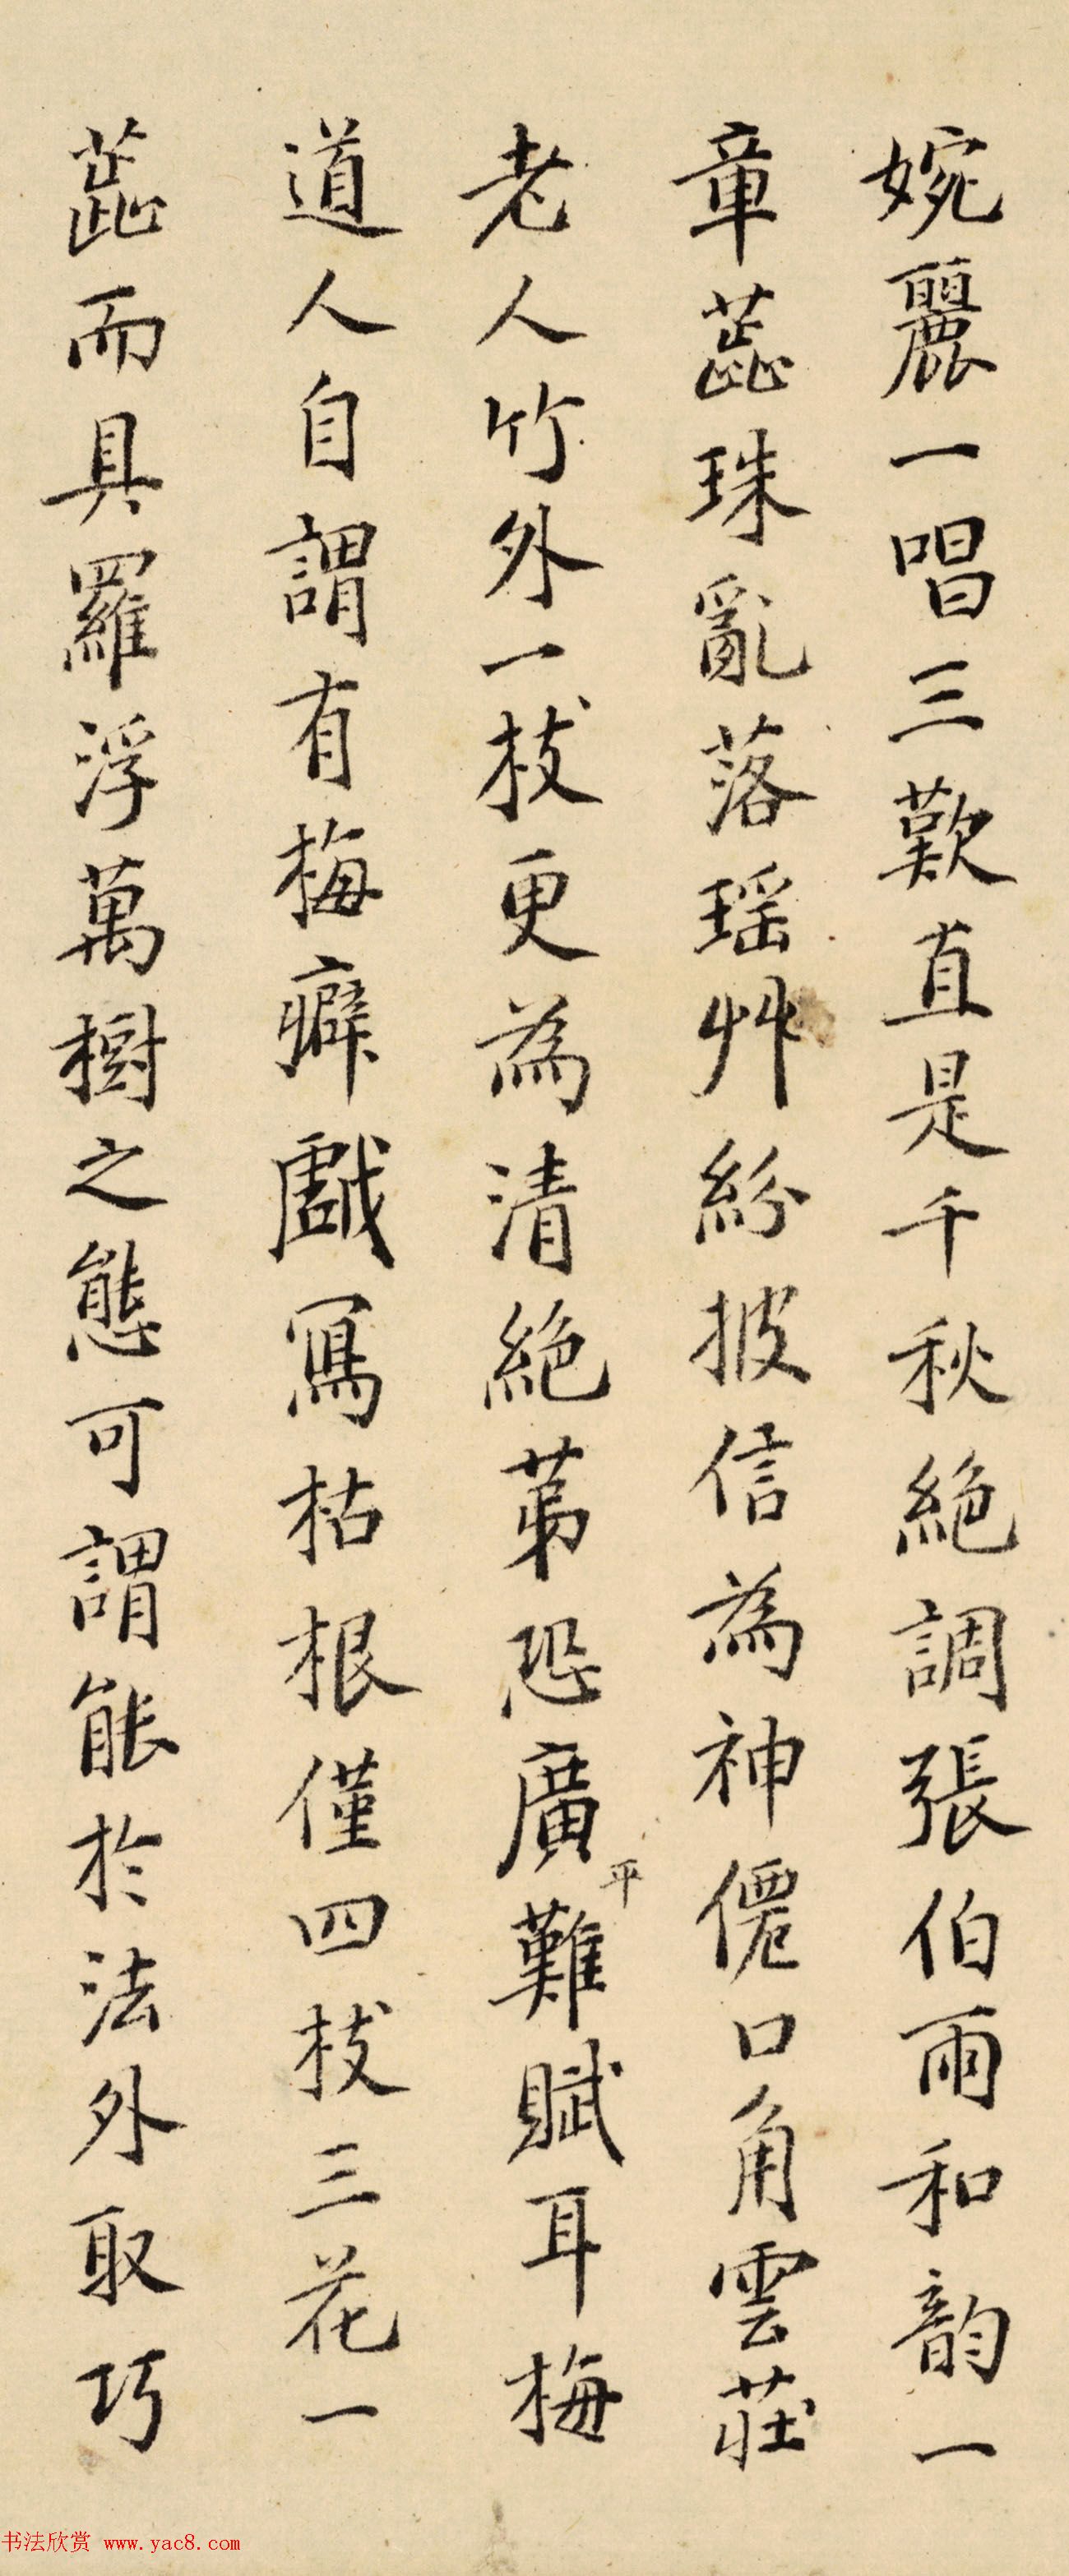 婉麗一唱三歎直是千秋絕調張伯雨和韻一
章蕋珠亂落瑶艸紛披信為神僊口角雲莊
老人竹外一枝更為清絕苐恐廣平難賦耳梅
道人自謂有梅癖戲寫枯根僅四枝三花一
蕋而具羅浮萬樹之態可謂能於法外取巧
书法欣赏 www.yac8.com